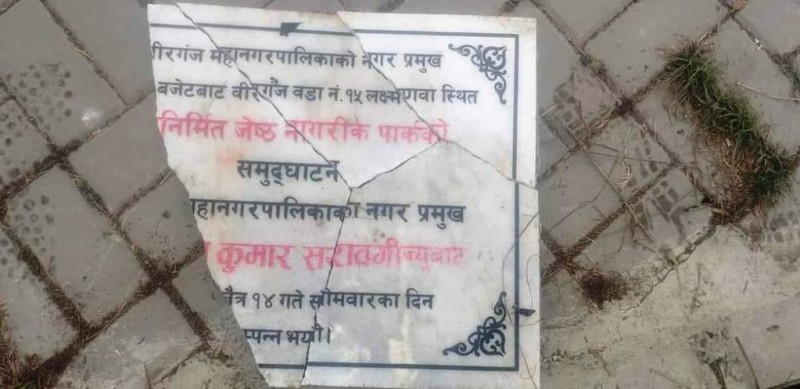 वीरगंज महानगरपालिकाको नगर प्रमुख
बजेटबाट वीरगंज वडा नं.१५ लक्ष्मणवा स्थित
निर्मित जेष्ठ नागरीक पार्कको
समुद्घाटन
महानगरपालिकाका नगर प्रमुख
कुमार सरावगीज्यूबाट
चैत्र १४ गते सोमवारका दिन
म्पन्न भयो।